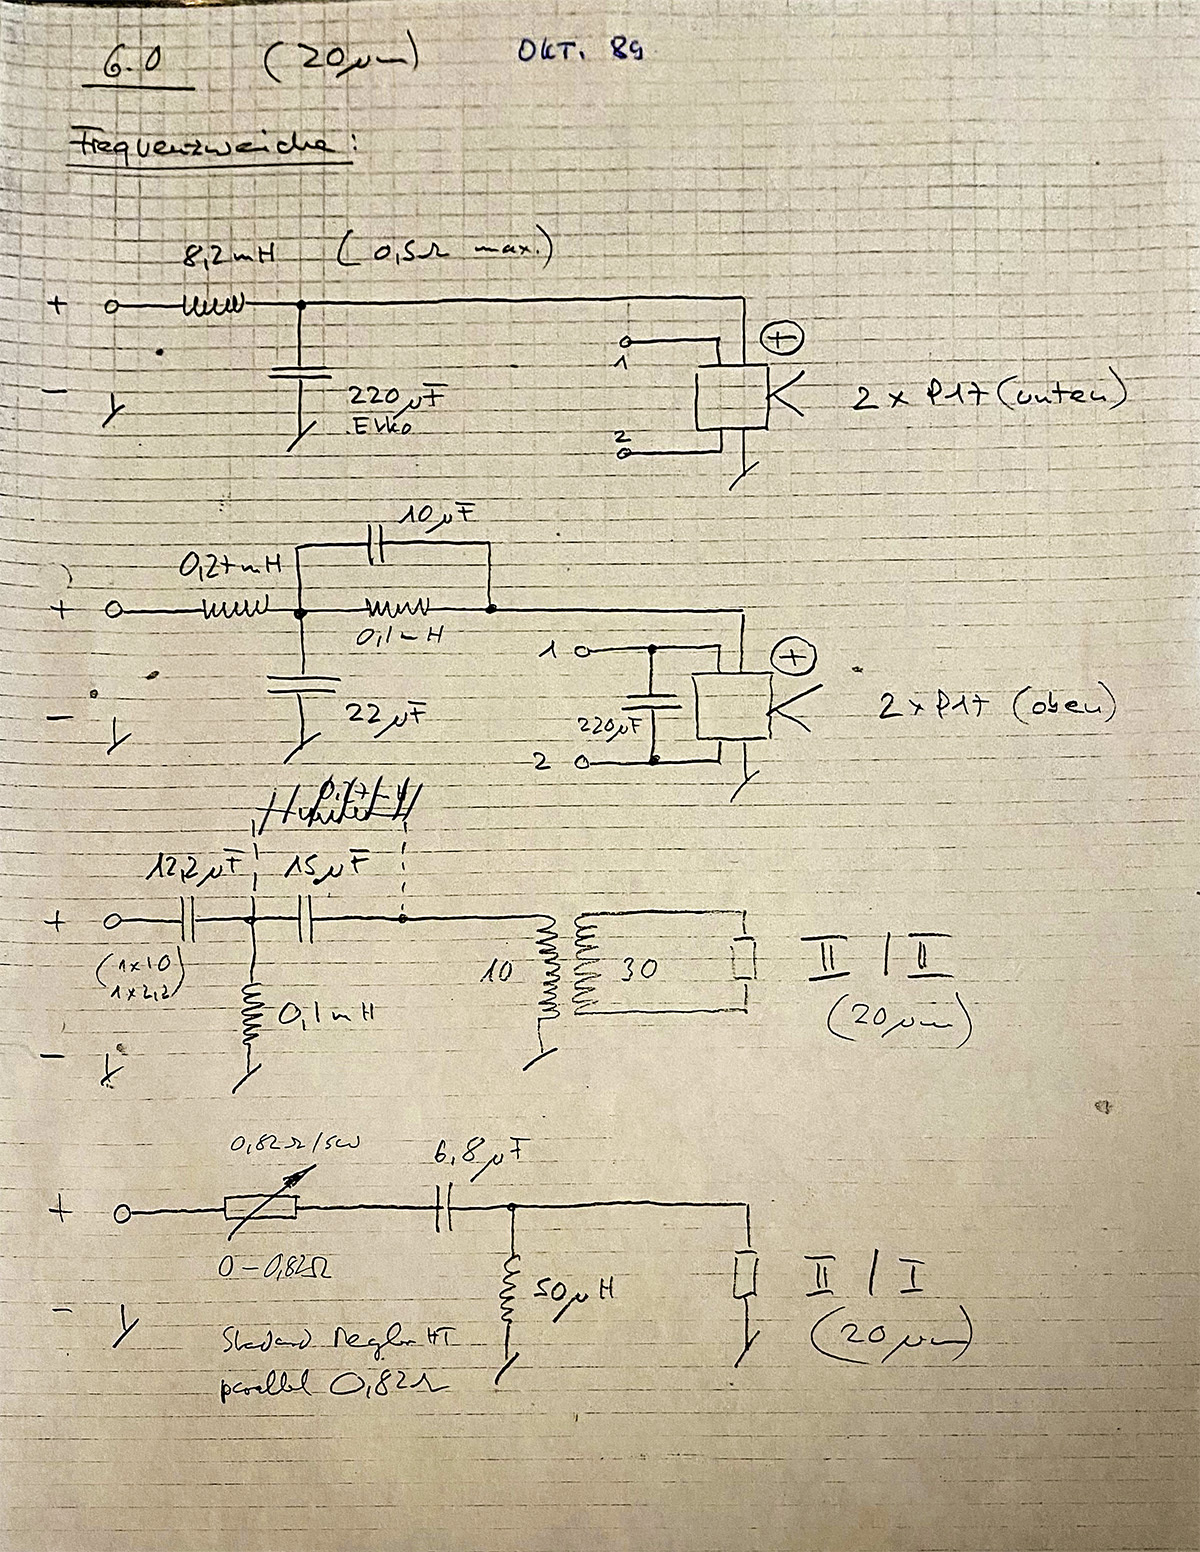 6.0 (20µm) OKT. 89
Frequenzweiche:
8,2mH (0,5Ω max.)
+
1
+
-
220µF
Elko
2 x P17 (unten)
2
10µF
0,27mH
+
0,1mH
1
+
-
22µF
220µF
2 x P17 (oben)
2
12,2µF 15µF
+
(1x10
1x2,2)
10 30
II / II
0,1mH
(20µm)
-
0,82Ω/5W
6,8µF
+
0-0,82Ω
50µH
II / I
-
(20µm)
Standard Regler HT
parallel 0,82Ω